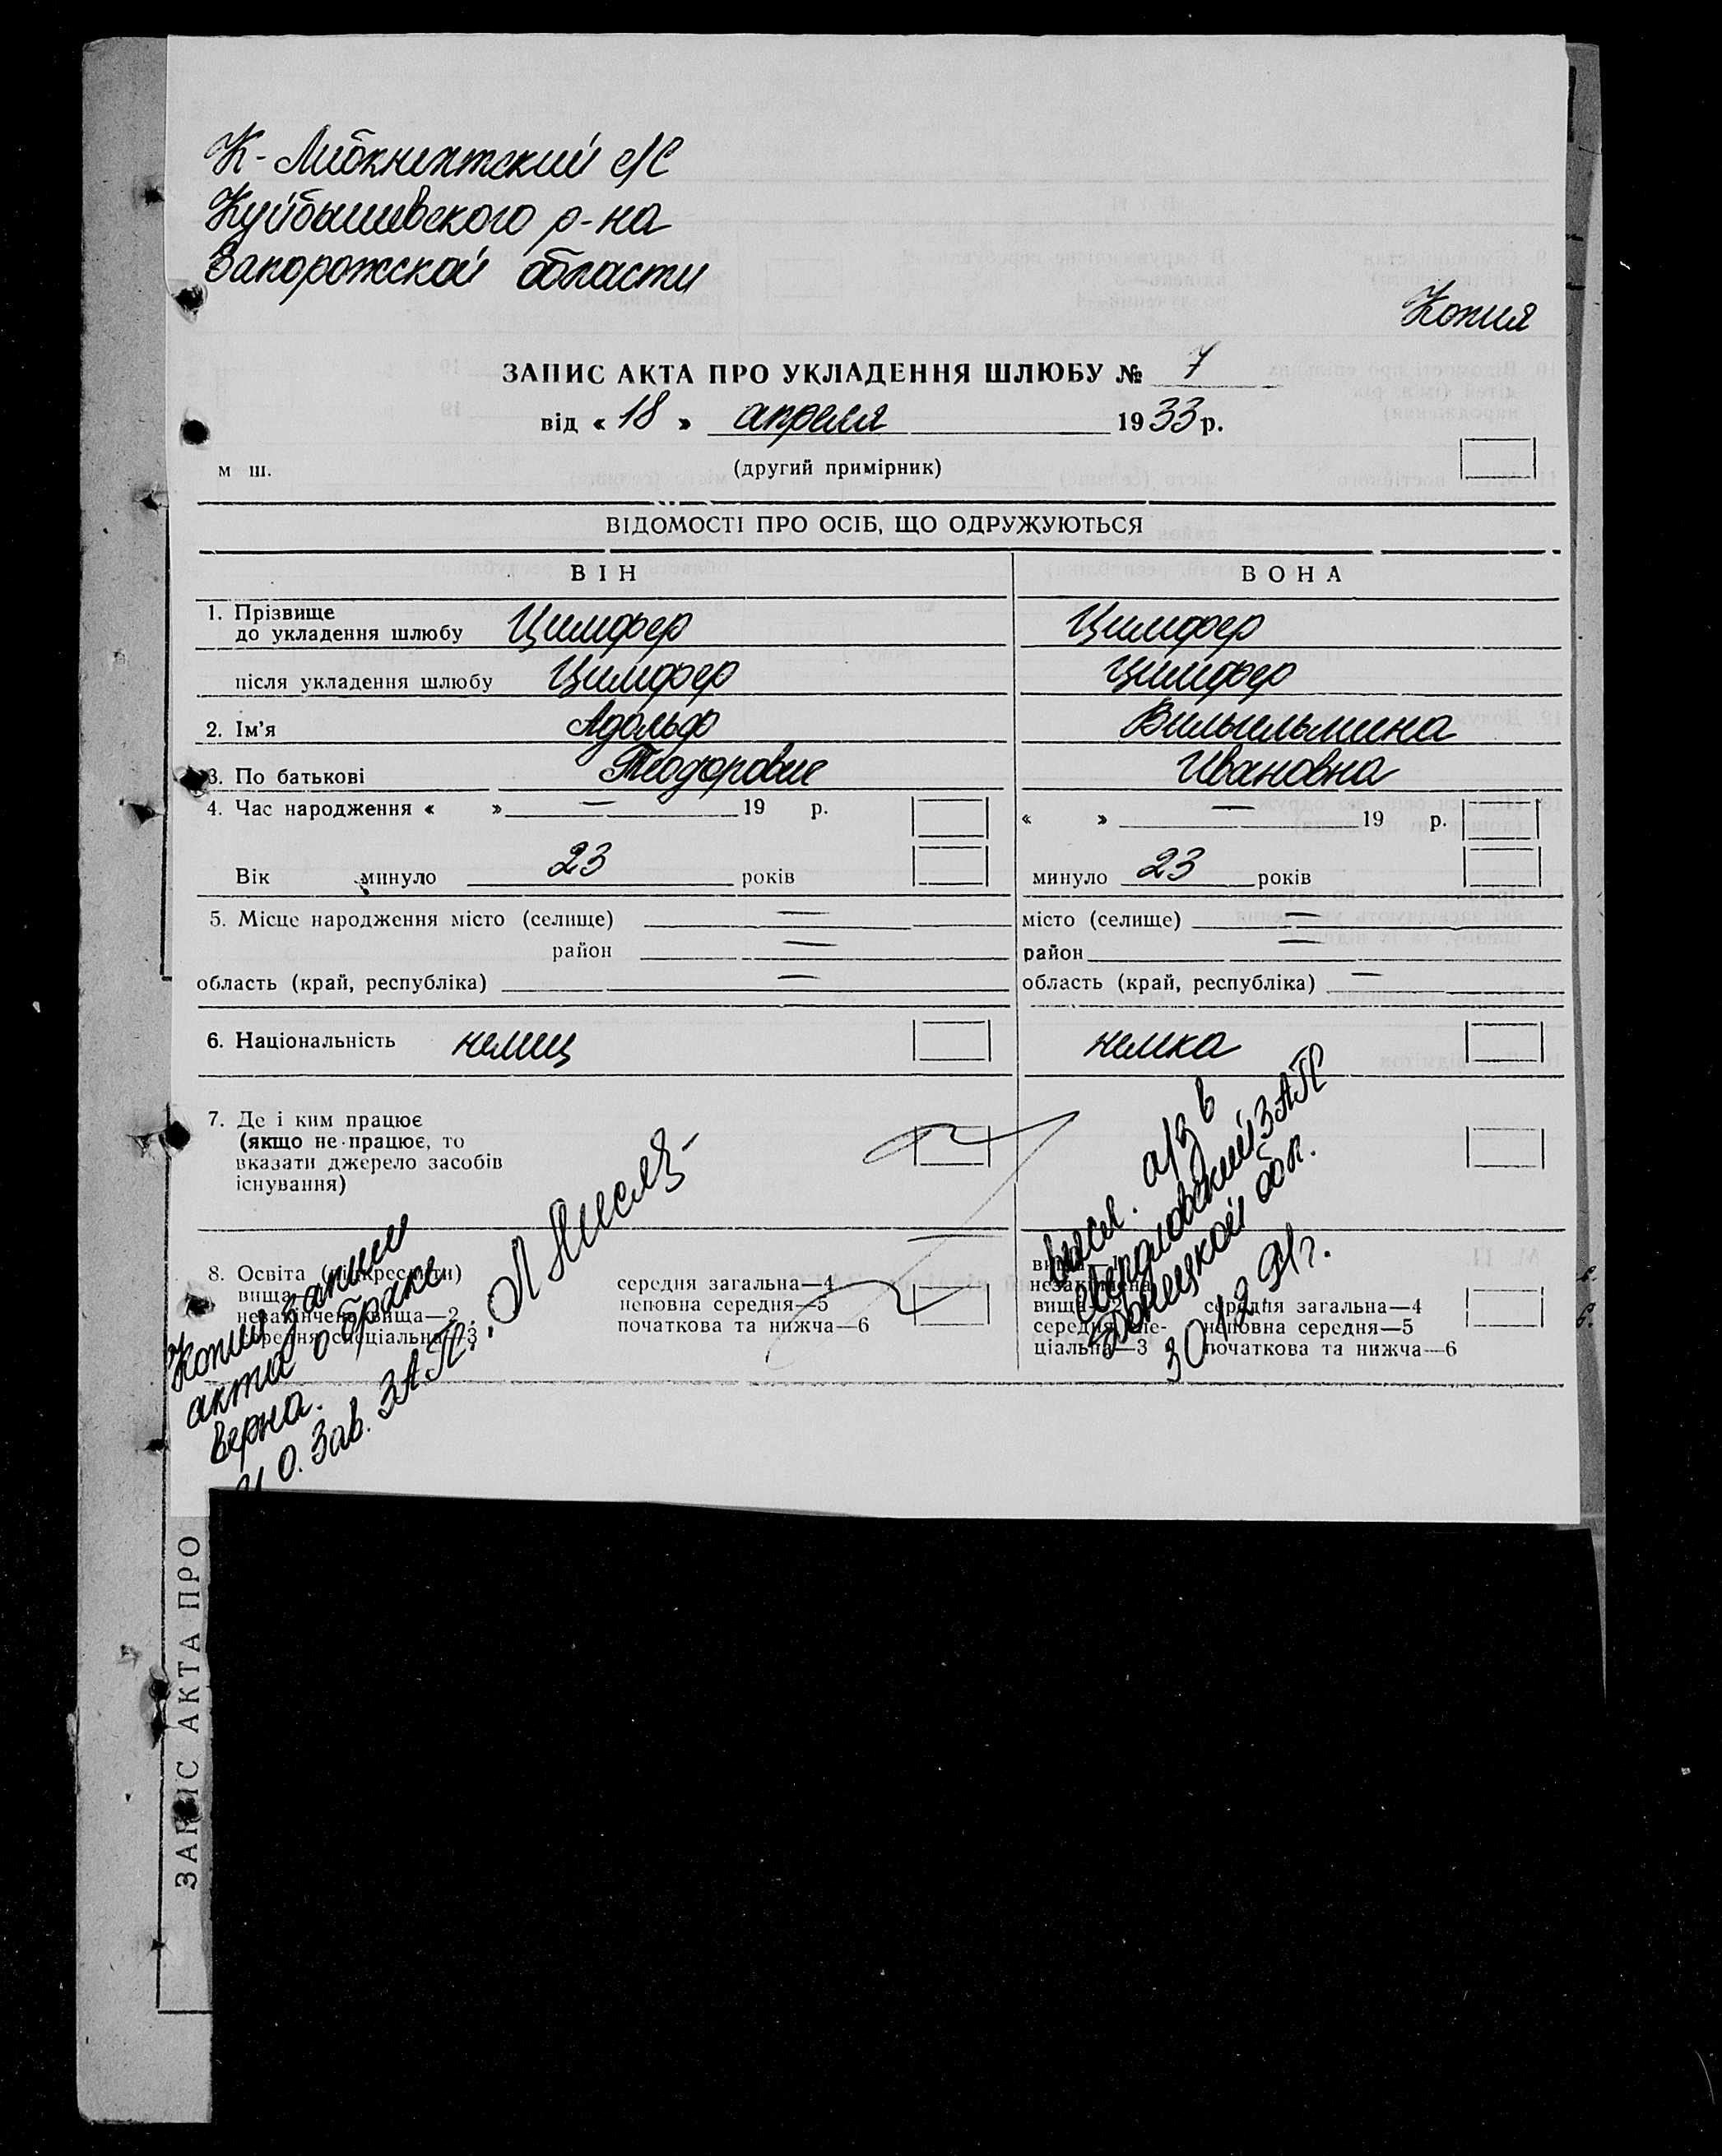 К-Либкнихтский с/с
Куйбышевского р-на
Запорожской области
Копия
ЗАПИС АКТА ПРО УКЛАДЕННЯ ШЛЮБУ № 7
від « 18 » апреля 1933 р.
м ш. (другий примірник)
ВІДОМОСТІ ПРО ОСІБ, ЩО ОДРУЖУЮТЬСЯ
ВІН ВОНА
1. Прізвище
до укладення шлюбу Цимфер Цимфер
після укладення шлюбу Цимфер Цимфер
2. Ім'я Адольф Вильгельмина
3. По батькові Теодорович Ивановна
4. Час народження « » — 19 р. « » — 19 р.
Вік минуло 23 років минуло 23 років
5. Місце народження місто (селище) — місто (селище) —
район — район —
область (край, республіка) — область (край, республіка) —
6. Національність немец немка
7. Де і ким працює
(якщо не працює, то
вказати джерело засобів
існування)
8. Освіта (підкреслити)
вища
незакінчена вища—2
середня спеціальна—3
середня загальна—4
неповна середня—5
початкова та нижча—6
вища
незакінчена
вища—2
середня спе-
ціальна—3
середня загальна—4
неповна середня—5
початкова та нижча—6
Копия записи
акта о браке
верна.
И О. Зав. ЗАГС:
высл. а/з в
ЗАГС
Донецкой обл.
30.12.91г.
ЗАПИС АКТА ПРО